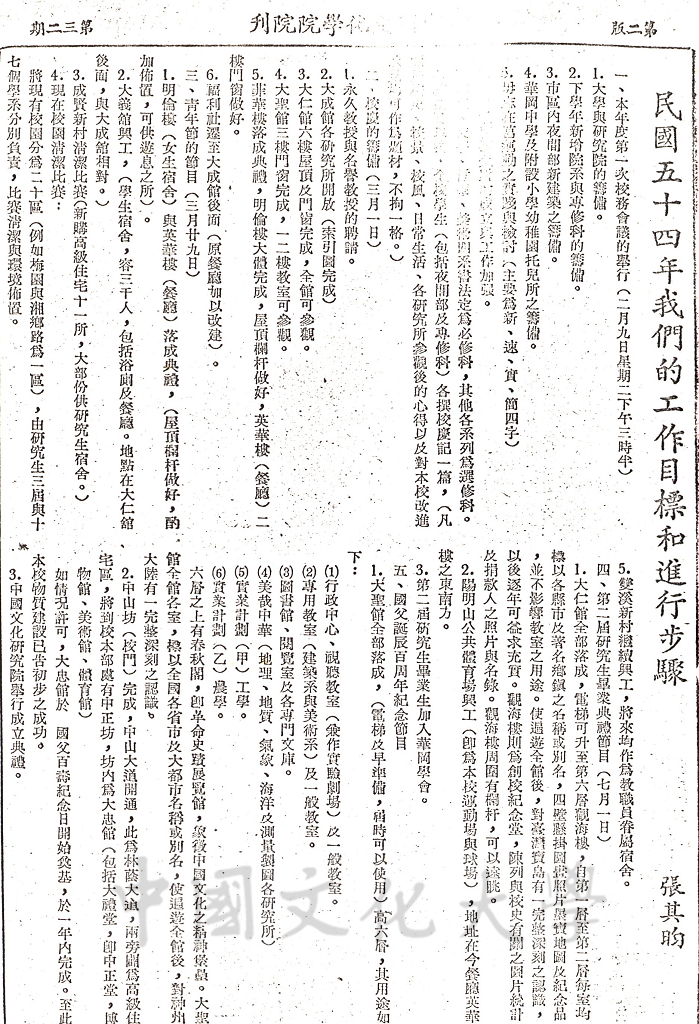 第二版
化學院院刊
第三二期
民國五十四年我們的工作目標和進行步驟
張其昀
一、本年度第一次校務會議的舉行(二月九日星期二下午三時半)
1.大學與研究院的籌備。
2.下學年新增院系與專修科的籌備。
3.市區內夜間部新建築之籌備。
4.華岡中學及附設小學幼稚園托兒所之籌備。
(主要爲新、速、實、簡四字)
工作加强。
書法定爲必修科,其他各系列爲選修科。
學生(包括夜間部及專修科)各撰校慶記一篇,(凡
校景、校風、日常生活、各研究所參觀後的心得以及對本校改進
可作爲題材,不拘一格。)
二、校慶的籌備(三月一日)
1.永久教授與名譽教授的聘請。
2.大成館各研究所開放(索引圖完成)
3.大仁館六樓屋頂及門窗完成,全館可參觀。
4.大聖館三樓門窗完成,一二樓教室可參觀。
5.菲華樓落成典禮,明倫樓大體完成,屋頂欄杆做好,英華樓(餐廳)二
樓門窗做好。
6.福利社遷至大成館後面(原餐廳加以改建)。
三、青年節的節目(三月廿九日)
1.明倫樓(女生宿舍)與英華樓(餐廳)落成典禮,(屋頂欄杆做好,酌
加佈置,可供遊息之所)。
2.大義館興工,(學生宿舍,容三千人,包括浴廁及餐廳。地點在大仁館
後面,與大成館相對。)
3.成賢新村清潔比賽(新購高級住宅十一所,大部份供研究生宿舍。)
4.現在校園清潔比賽:
將現有校園分爲二十區(例如梅園與湘鄉路爲一區),由研究生三屆與十
七個學系分別負責,比賽清潔與環境佈置。
5.雙溪新村繼續興工,將來均作爲教職員眷屬宿舍。
四、第二屆研究生畢業典禮節目(七月一日)
1.大仁館全部落成,電梯可升至第六層觀海樓,自第一層至第二層每室均
標以各縣市及著名鄉鎮之名稱或別名,四壁懸掛圖畫照片景寶地圖及紀念品
,並不影響教室之用途。使遍遊全館後,對臺灣寶島有一完整深刻之認識,
以後逐年可益求充實。觀海樓則爲創校紀念堂,陳列與校史有關之圖片統計
及捐款人之照片與名錄。觀海樓周圍有欄杆,可以遠眺。
2.陽明山公共體育場興工(卽爲本校運動場與球場),地址在今餐廳英華
樓之東南方。
3.第二屆研究生畢業生加入華岡學會。
五、國父誕辰百周年紀念節目
1.大聖館全部落成,(電梯及早準備,屆時可以使用)高六層,其用途如
下:
(1)行政中心、視聽教室(兼作實驗劇場)及一般教室。
(2)專用教室(建築系與美術系)及一般教室。
(3)圖書館、閱覽室及各專門文庫。
(4)美哉中華(地理、地質、氣象、海洋及測量製圖各研究所)
(5)實業計劃(甲)工學。
(6)實業計劃(乙)農學。
六層之上有春秋閣,卽革命史蹟展覽館,象徵中國文化之精神堡壘。大聖
館全館各室,標以全國各省市及大都市名稱或別名,使遍遊全館後,對神州
大陸有一完整深刻之認識。
2.中山坊(校門)完成,中山大道開通,此爲林蔭大道,兩旁闢爲高級住
宅區,將到校本部處有中正坊,坊內爲大忠館(包括大禮堂,卽中正堂,博
物館、美術館、體育館)
如情況許可,大忠館於 國父百壽紀念日開始奠基,於一年內完成。至此
本校物質建設已告初步之成功。
3.中國文化研究院舉行成立典禮。
中國文化大學